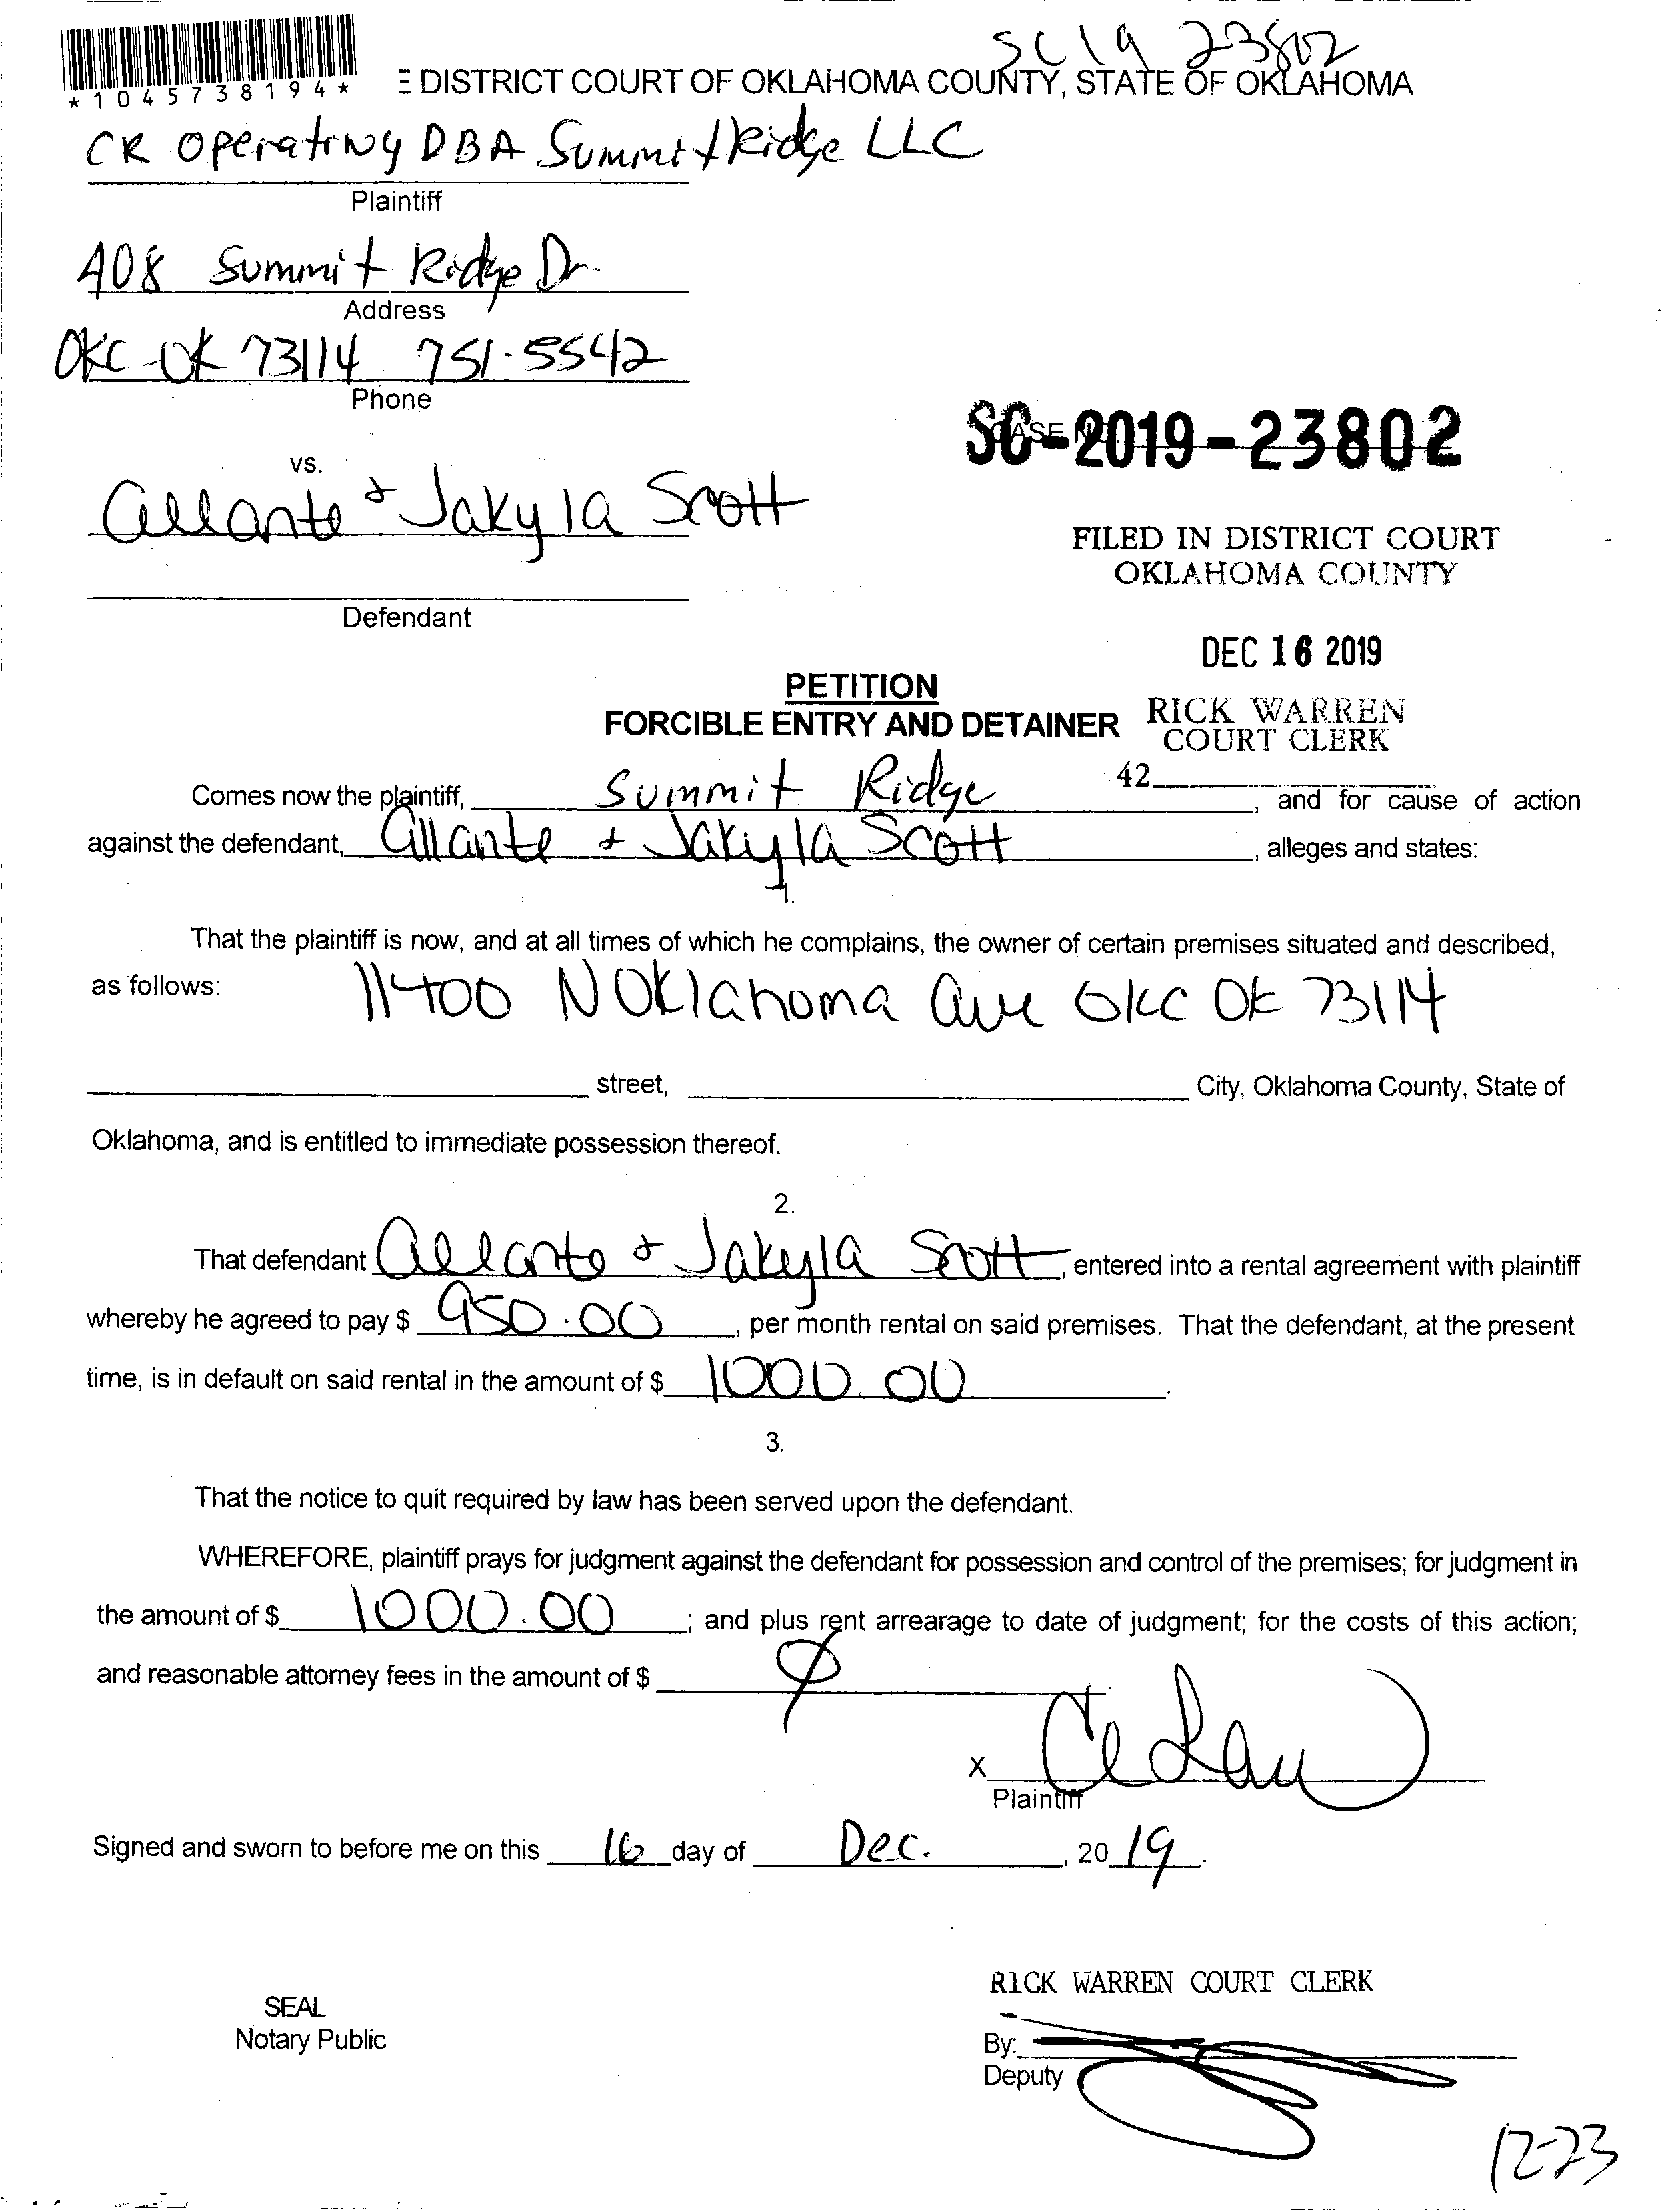 SC19 23802
*1045738194*
E DISTRICT COURT OF OKLAHOMA COUNTY, STATE OF OKLAHOMA
CR Operating DBA Summit Ridge LLC
Plaintiff
408 Summit Ridge Dr.
Address
OKC OK 73114 751-5542
Phone
SC-2019-23802
vs.
Allante & Jakyla Scott
FILED IN DISTRICT COURT
OKLAHOMA COUNTY
Defendant
DEC 16 2019
PETITION
FORCIBLE ENTRY AND DETAINER
RICK WARREN
COURT CLERK
42
Comes now the plaintiff, Summit Ridge, and for cause of action
against the defendant, Allante + Jakyla Scott, alleges and states:
1.
That the plaintiff is now, and at all times of which he complains, the owner of certain premises situated and described,
as follows: 11400 N Oklahoma Ave OKC OK 73114
street, City, Oklahoma County, State of
Oklahoma, and is entitled to immediate possession thereof.
2.
That defendant Allante & Jakyla Scott, entered into a rental agreement with plaintiff
whereby he agreed to pay $ 950.00, per month rental on said premises. That the defendant, at the present
time, is in default on said rental in the amount of $ 1000.00.
3.
That the notice to quit required by law has been served upon the defendant.
WHEREFORE, plaintiff prays for judgment against the defendant for possession and control of the premises; for judgment in
the amount of $ 1000.00; and plus rent arrearage to date of judgment; for the costs of this action;
and reasonable attorney fees in the amount of $ 0
X
Plaintiff
Signed and sworn to before me on this 16 day of Dec., 2019.
RICK WARREN COURT CLERK
SEAL
Notary Public
By:
Deputy
12-23